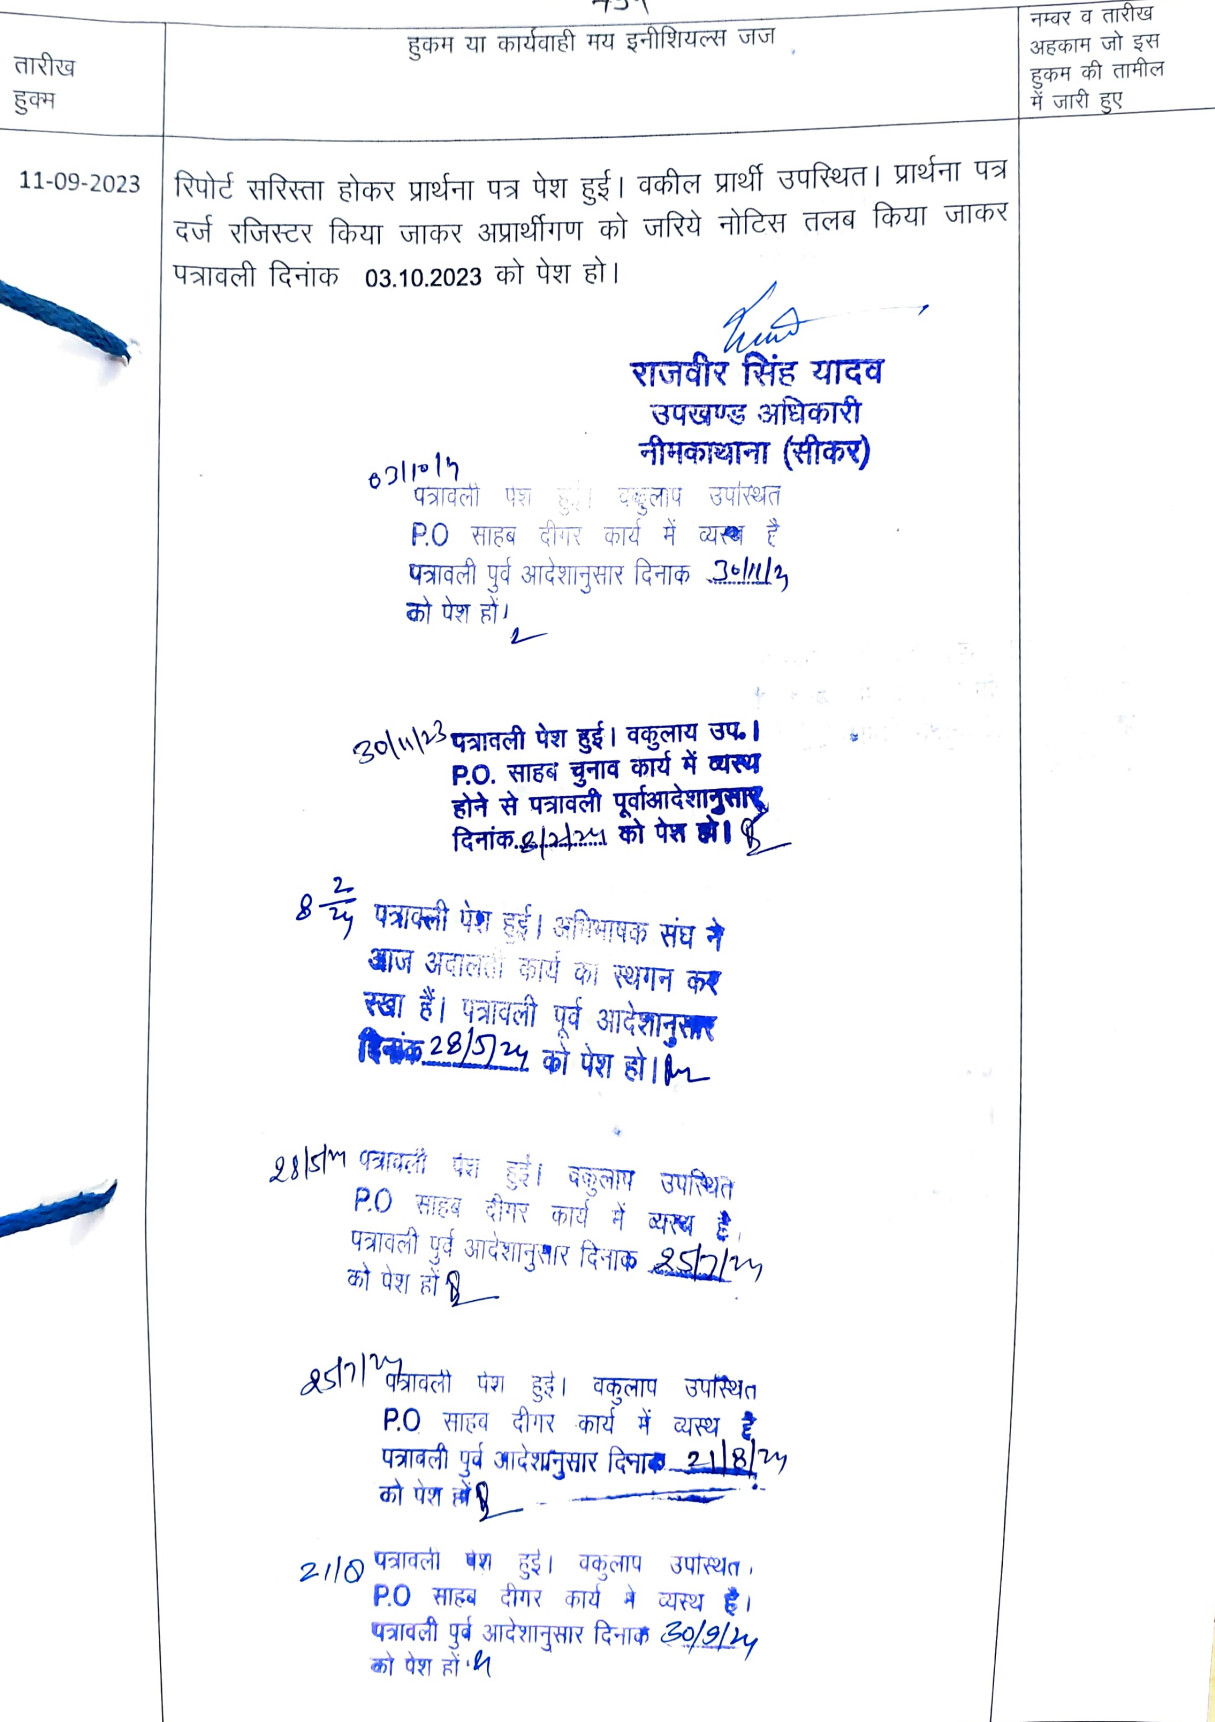 हुकम या कार्यवाही मय इनीशियल्स जज
नम्वर व तारीख
अहकाम जो इस
हुकम की तामील
में जारी हुए
तारीख
हुक्म
11-09-2023
रिपोर्ट सरिस्ता होकर प्रार्थना पत्र पेश हुई। वकील प्रार्थी उपस्थित। प्रार्थना पत्र
दर्ज रजिस्टर किया जाकर अप्रार्थीगण को जरिये नोटिस तलब किया जाकर
पत्रावली दिनांक 03.10.2023 को पेश हो।
राजवीर सिंह यादव
उपखण्ड अधिकारी
नीमकाथाना (सीकर)
पत्रावली पेश हुई। वकुलाप उपस्थित
P.O साहब दीगर कार्य में व्यस्थ है
पत्रावली पुर्व आदेशानुसार दिनाक 30/11/23
को पेश हों।
30/11/23 पत्रावली पेश हुई। वकुलाय उप.।
P.O. साहब चुनाव कार्य में व्यस्थ
होने से पत्रावली पूर्वाआदेशानुसार
दिनांक 8/2/24 को पेश हो।
8 2/24 पत्रावली पेश हुई। अभिभाषक संघ ने
आज अदालती कार्य का स्थगन कर
रखा हैं। पत्रावली पूर्व आदेशानुसार
दिनांक 28/5/24 को पेश हो।
28/5/24 पत्रावली पेश हुई। वकुलाप उपस्थित
P.O साहब दीगर कार्य में व्यस्थ है
पत्रावली पुर्व आदेशानुसार दिनाक 25/7/24
को पेश हों
25/7/24 पत्रावली पेश हुई। वकुलाप उपस्थित
P.O साहब दीगर कार्य में व्यस्थ है
पत्रावली पुर्व आदेशानुसार दिनाक 21/8/24
को पेश हों
21/8 पत्रावली पेश हुई। वकुलाप उपस्थित।
P.O साहब दीगर कार्य मे व्यस्थ है।
पत्रावली पुर्व आदेशानुसार दिनाक 30/9/24
को पेश हों